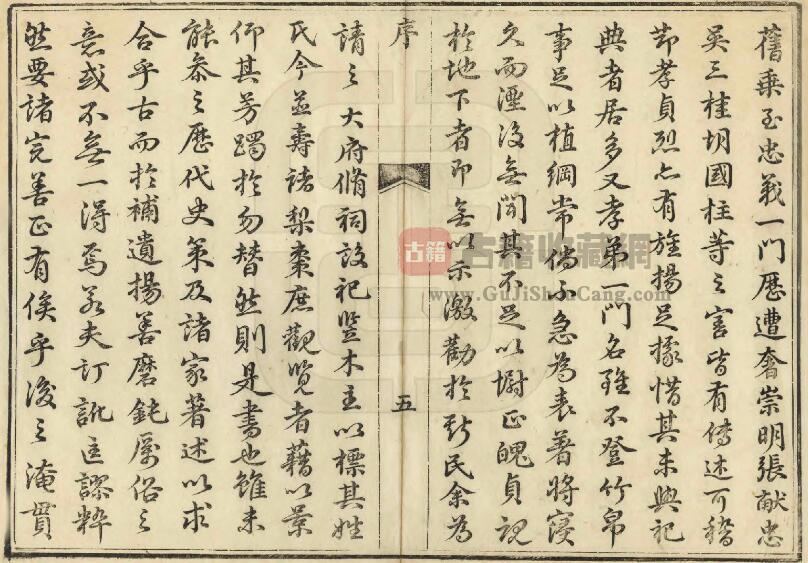 舊乘至忠義一門歷遭奢崇明張献忠
吳三桂胡國柱等之害皆有傳述可稽
節孝貞烈亦有旌揚足據惜其未與祀
典者居多又孝弟一門名雖不登竹帛
事足以植綱常倘不急為表著將寖
久而湮沒無聞其不足以慰正魄貞魂
於地下者即無以示激勸於斯民余為
序
五
請之大府脩祠設祀竪木主以標其姓
氏今並壽諸梨棗庶觀覽者藉以景
仰其芳躅於勿替然則是書也雖未
能叅之歷代史策及諸家著述以求
合乎古而於補遺揚善磨鈍厲俗之
意或不無一得焉若夫訂訛匡謬粹
然要諸完善正有俟乎後之淹貫
古籍
古籍收藏網
www.GuJiShouCang.com